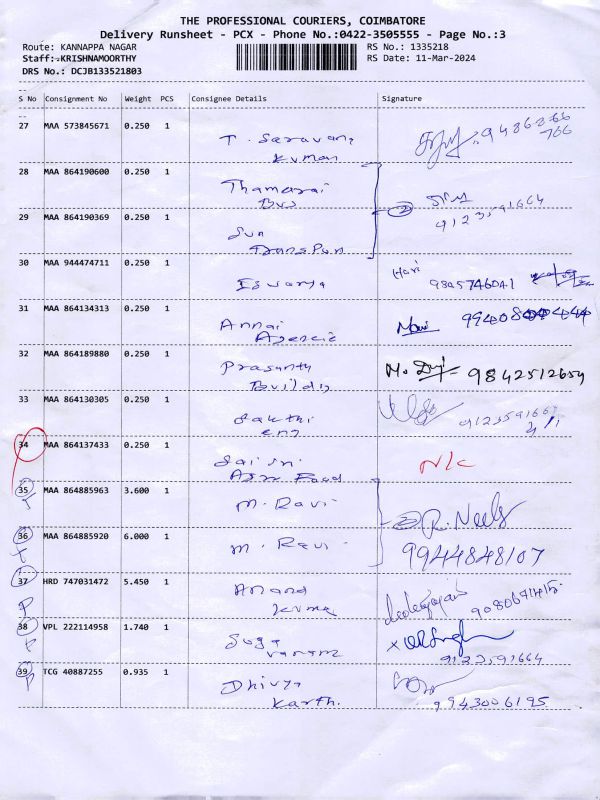 THE PROFESSIONAL COURIERS, COIMBATORE
Delivery Runsheet - PCX - Phone No.:0422-3505555 - Page No.:3
Route: KANNAPPA NAGAR RS No.: 1335218
Staff:-KRISHNAMOORTHY RS Date: 11-Mar-2024
DRS No.: DCJB133521803
S No Consignment No Weight PCS Consignee Details Signature
27 MAA 573845671 0.250 1 T. Saravana
Kumar
766
28 MAA 864190600 0.250 1 Thamarai
Bus
29 MAA 864190369 0.250 1 Sun
2
9123591664
30 MAA 944474711 0.250 1 Iswarya Hari
31 MAA 864134313 0.250 1 Annai
Agencie
32 MAA 864189880 0.250 1 Prasanth 9842512654
33 MAA 864130305 0.250 1 Sakthi
eng
34 MAA 864137433 0.250 1 Sai Sri N/c
Food
35 MAA 864885963 3.600 1 M. Ravi
T
2 R. Neels
36 MAA 864885920 6.000 1 M. Ravi 9944848107
T
37 HRD 747031472 5.450 1 Anand
Kumar
P
38 VPL 222114958 1.740 1 Suga
vanam
P
9123591664
39 TCG 40887255 0.935 1 Dhivya
Karth.
P
9943006195